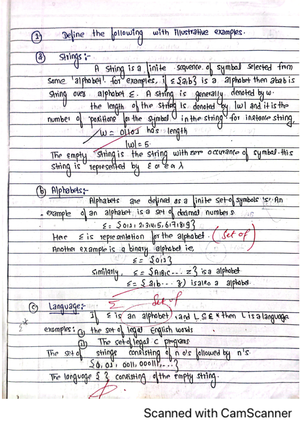 ① Define the following with Illustrative examples.
ⓐ Strings:-
A string is a finite sequence of symbol selected from
some 'alphabet'. for examples, if Σ{a,b} is a alphabet then abab is
string over alphabet Σ. A string is generally denoted by w.
the length of the string is denoted by |w| and it is the
number of 'positions' for the symbol in the string for instance string.
w = 01103 has length
|w| = 5
The empty string is the string with zero occurance of symbol. this
string is represented by ε or λ
ⓑ Alphabets:-
Alphabets are defined as a finite set of symbols 's'. An
example of an alphabet is a set of decimal numbers
Σ = {0,1,2,3,4,5,6,7,8,9}
Here Σ is representation for the alphabet. (set of)
Another example is a binary alphabet i.e,
Σ = {0,1}
similarly, Σ = {A,B,C... z} is a alphabet
Σ = {a,b... z} is also a alphabet
ⓒ Language:- Σ Set of
If Σ is an alphabet, and L ⊆ Σ* then L is a language
examples: ① the set of legal English words
② The set of legal C programs
The set of strings consisting of n 0's followed by n 1's
{01, 0011, 000111, ...}
The language { } consisting of the empty string.
Scanned with CamScanner